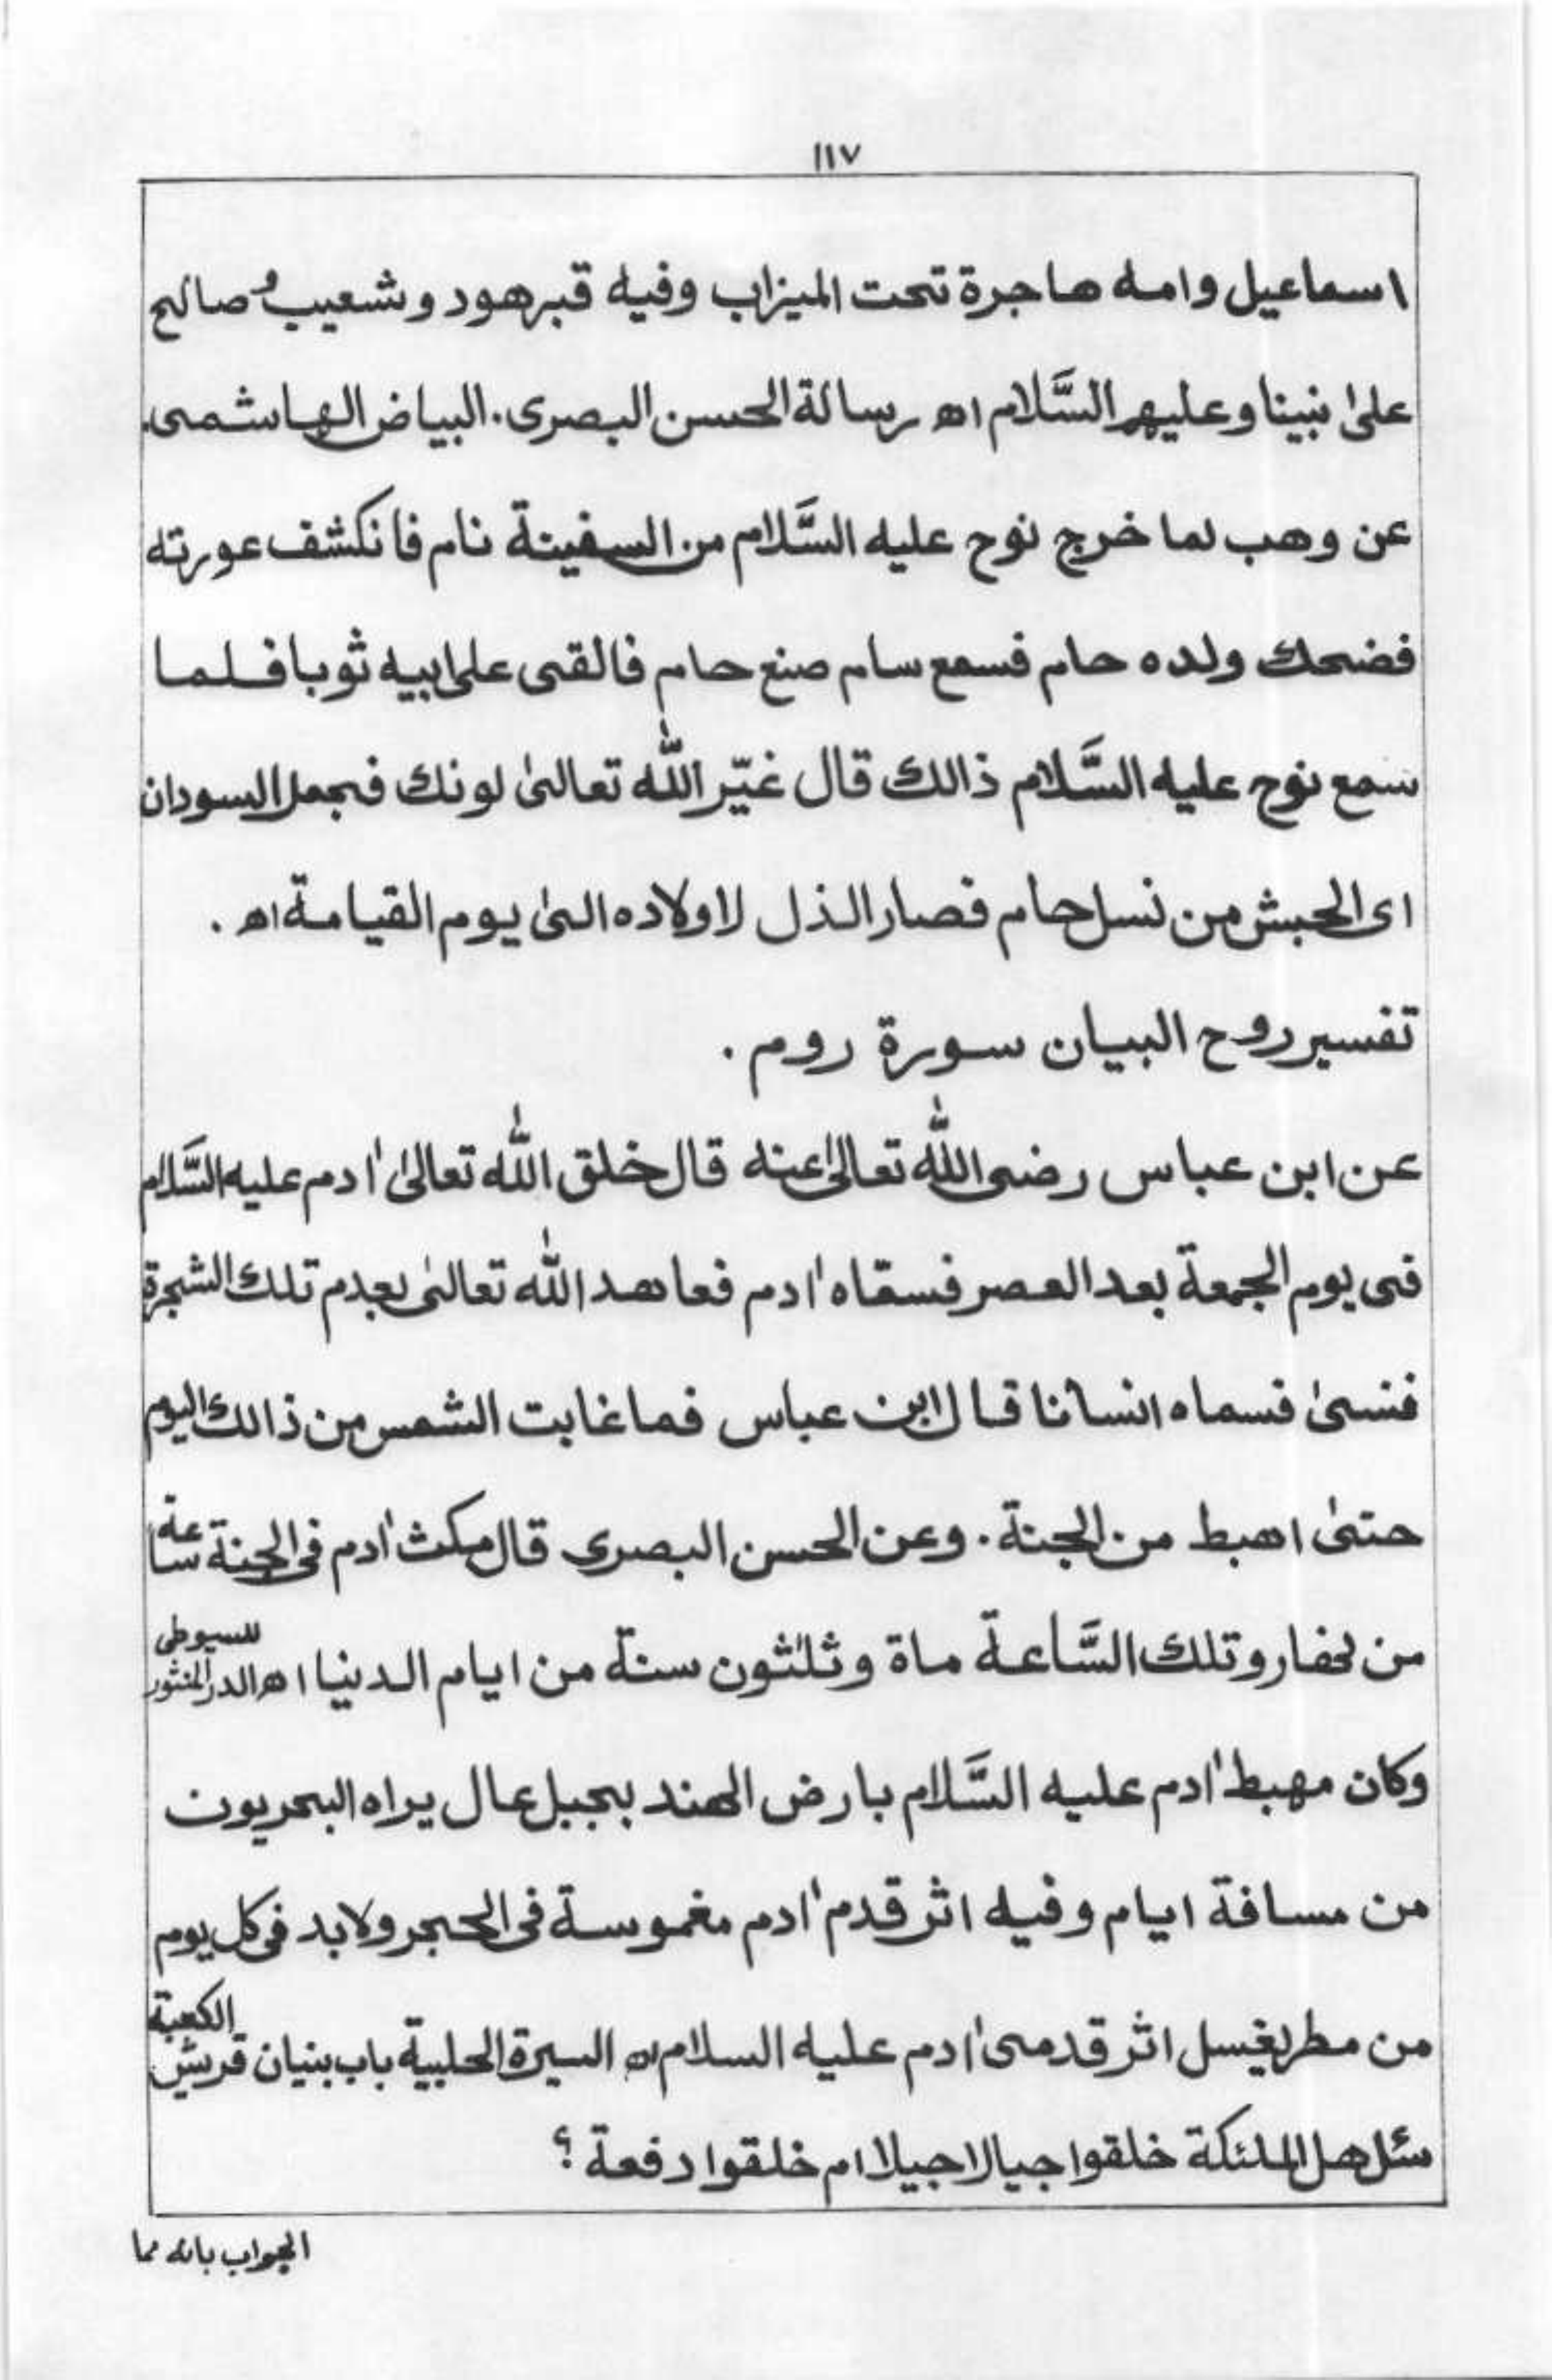 ١١٧
اسماعيل وامه هاجرة تحت الميزاب وفيه قبر هود وشعيب وصالح
علىٰ نبينا وعليهم السَّلام اھ رسالة الحسن البصرى. البياض الهاشمى.
عن وهب لما خرج نوح عليه السَّلام من السفينة نام فانكشف عورته
فضحك ولده حام فسمع سام صنع حام فالقى على ابيه ثوبا فلما
سمع نوح عليه السَّلام ذالك قال غيّر اللّٰه تعالىٰ لونك فجعل السودان
اى الحبش من نسل حام فصار الذل لاولاده الىٰ يوم القيامة اھ .
تفسير روح البيان سورة روم .
عن ابن عباس رضى اللّٰه تعالىٰ عنه قال خلق اللّٰه تعالىٰ اٰدم عليه السَّلام
فى يوم الجمعة بعد العصر فسقاه اٰدم فعاهد اللّٰه تعالىٰ بعدم تلك الشجرة
فنسىٰ فسماه انسانا قال ابن عباس فما غابت الشمس من ذالك اليوم
حتىٰ اهبط من الجنة . وعن الحسن البصرى قال مكث اٰدم فى الجنة ساعة
من نهار وتلك السَّاعة ماة وثلٰثون سنة من ايام الدنيا اھ الدر المنثور للسيوطى
وكان مهبط اٰدم عليه السَّلام بارض الهند بجبل عال يراه البحريون
من مسافة ايام وفيه اثر قدم اٰدم مغموسة فى الحجر ولابد فى كل يوم
من مطر يغسل اثر قدمى اٰدم عليه السلام اھ السيرة الحلبية باب بنيان قريش الكعبة
سئل هل الملئكة خلقوا جيالا جيلا ام خلقوا دفعة ؟
الجواب بانه مما